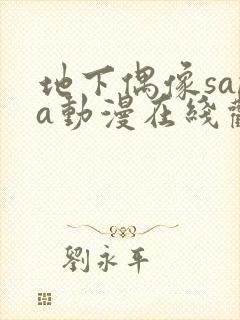 地下偶像sa
a動漫在綫
劉永平